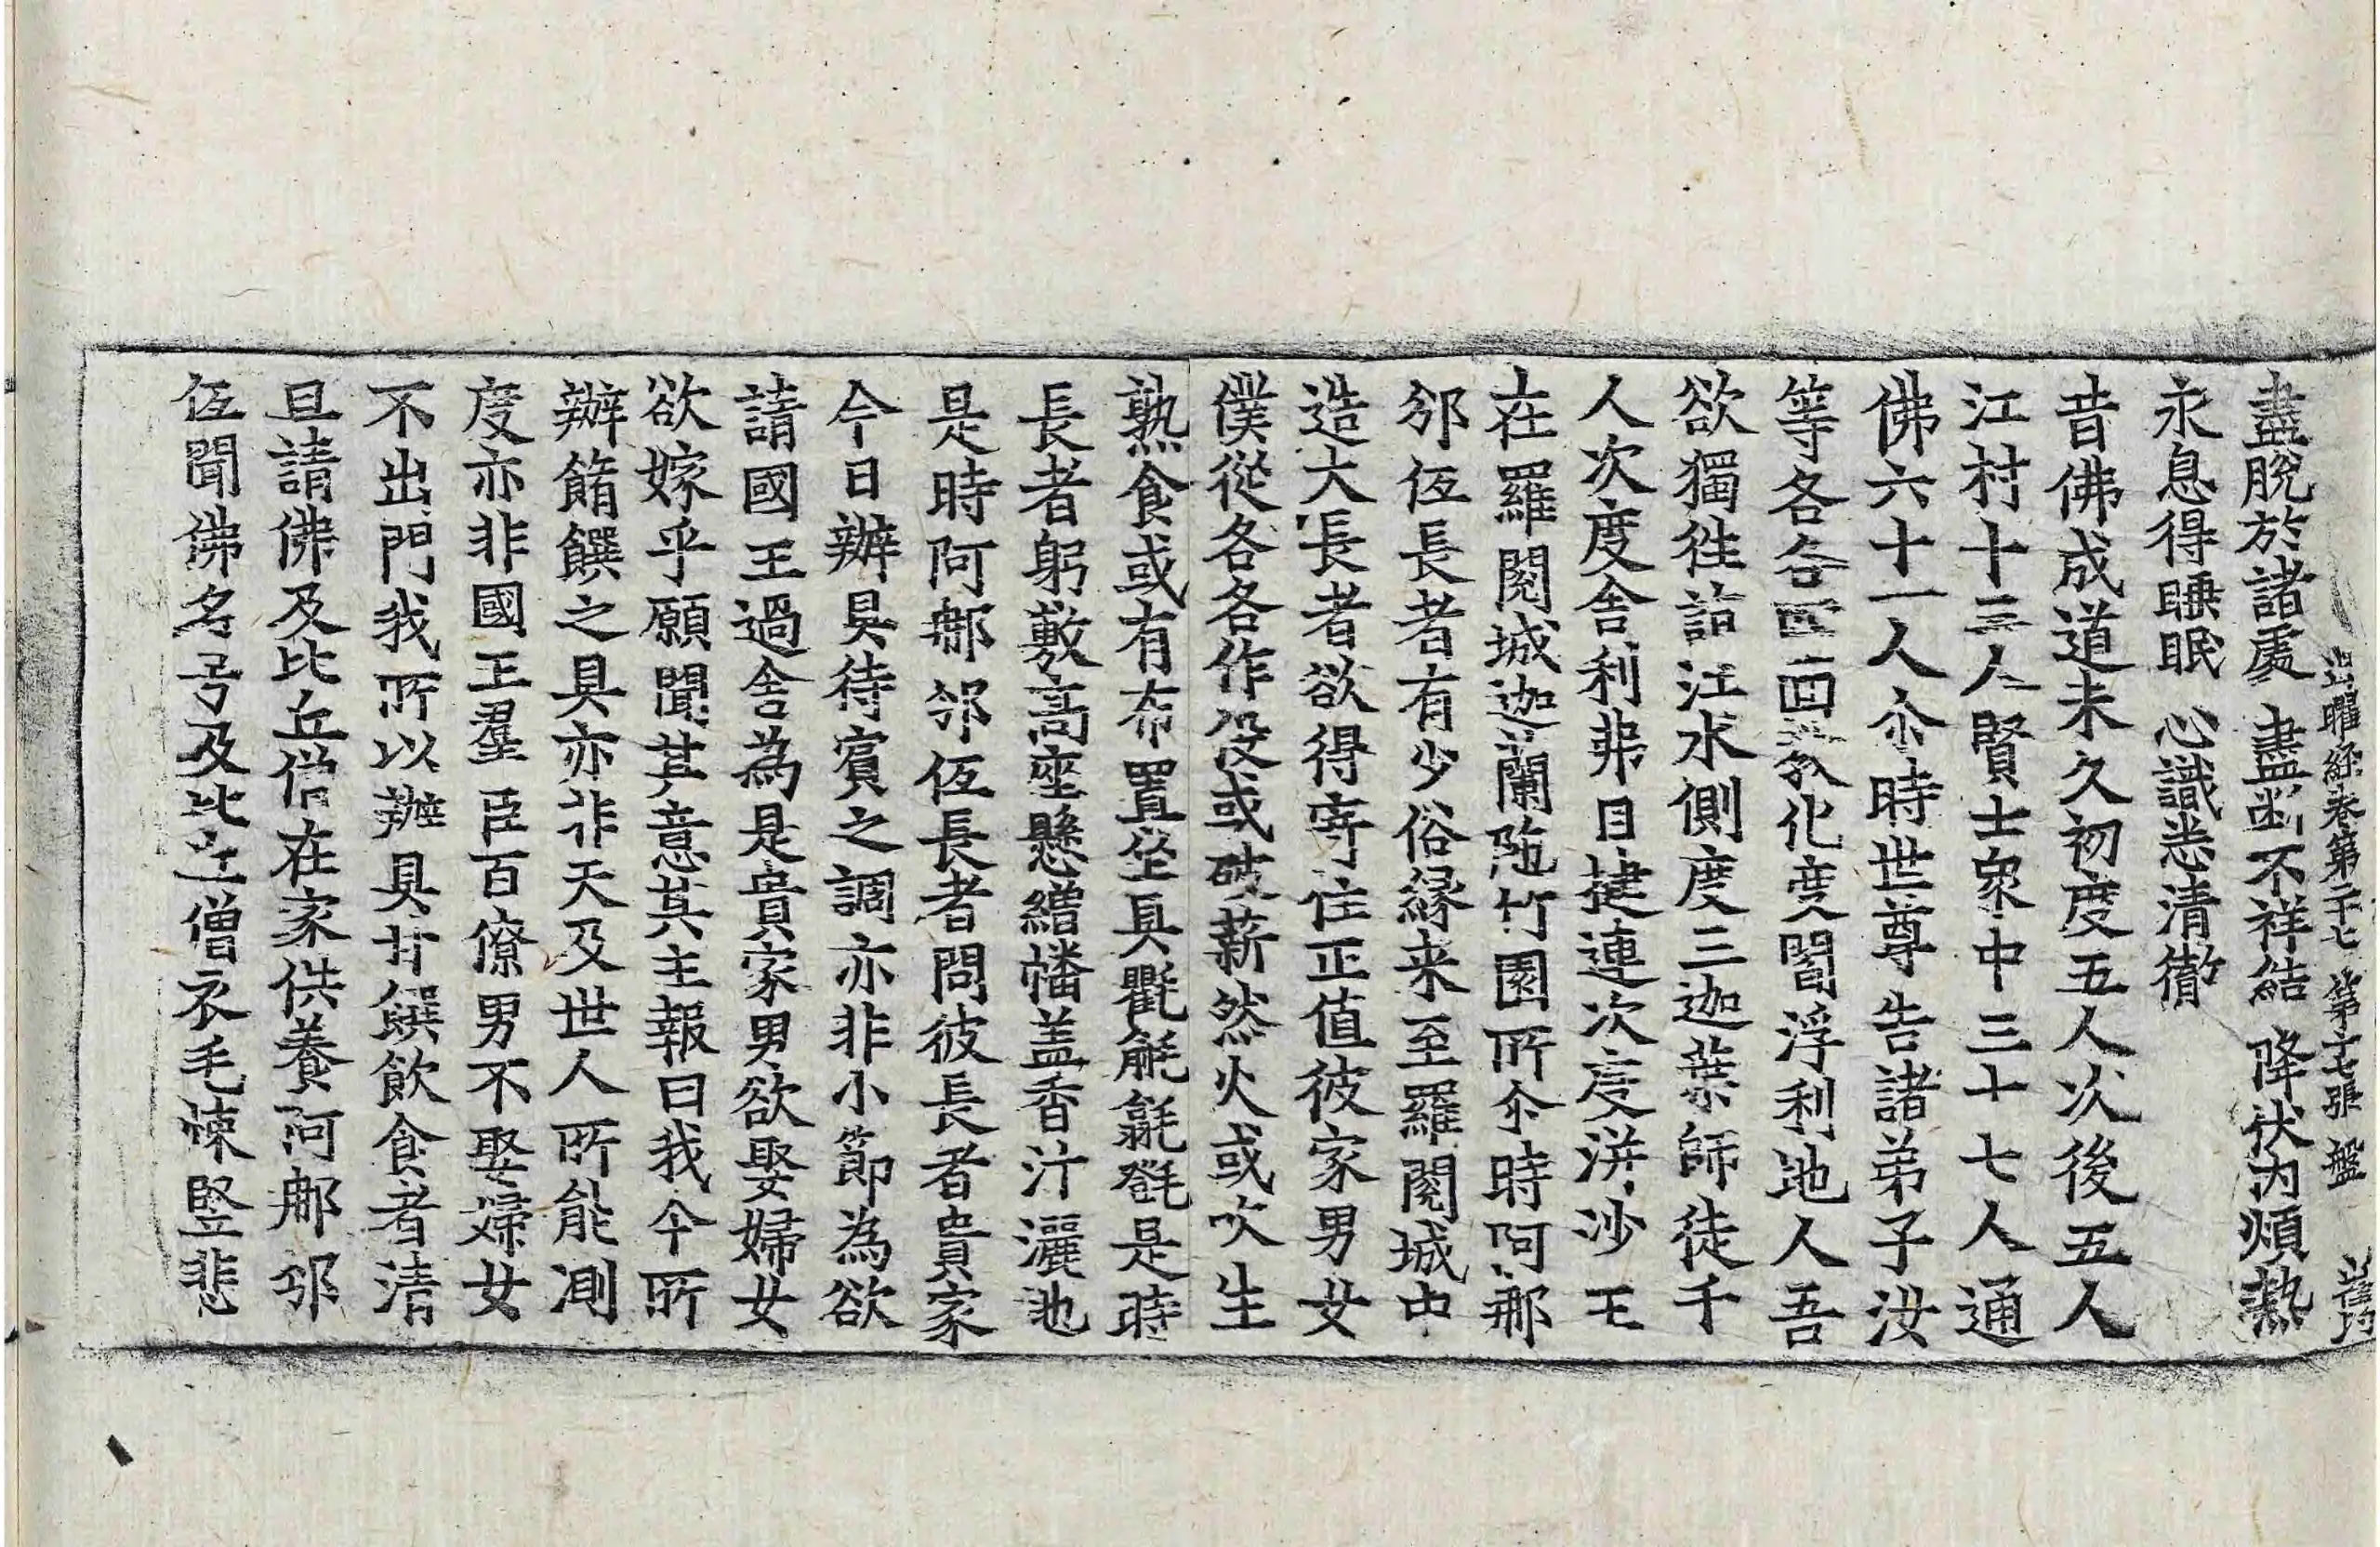 出曜經卷第二十七 第十七張 盤
盡脫於諸處 盡斷不祥結 降伏內煩熱
永息得睡眠 心識悉清徹
昔佛成道未久初度五人次後五人
江村十三人賢士衆中三十七人通
佛六十一人尒時世尊告諸弟子汝
等各各四面教化度閻浮利地人吾
欲獨往詣江水側度三迦葉師徒千
人次度舍利弗目揵連次度洴沙王
在羅閱城迦蘭陁竹園所尒時阿那
邠仾長者有少俗緣来至羅閱城中
造大長者欲得寄住正值彼家男女
僕從各各作役或破薪然火或吹生
熟食或有布置坐具氍毹㲪㲪是時
長者躬敷高座懸繒幡盖香汁灑地
是時阿那邠仾長者問彼長者貴家
今日辦具待賓之調亦非小節為欲
請國王過舍為是貴家男欲娶婦女
欲嫁乎願聞其意其主報曰我今所
辦餚饌之具亦非天及世人所能測
度亦非國王羣臣百僚男不娶婦女
不出門我所以辦具甘饌飲食者清
旦請佛及比丘僧在家供養阿那邠
仾聞佛名号及比丘僧衣毛悚竪悲